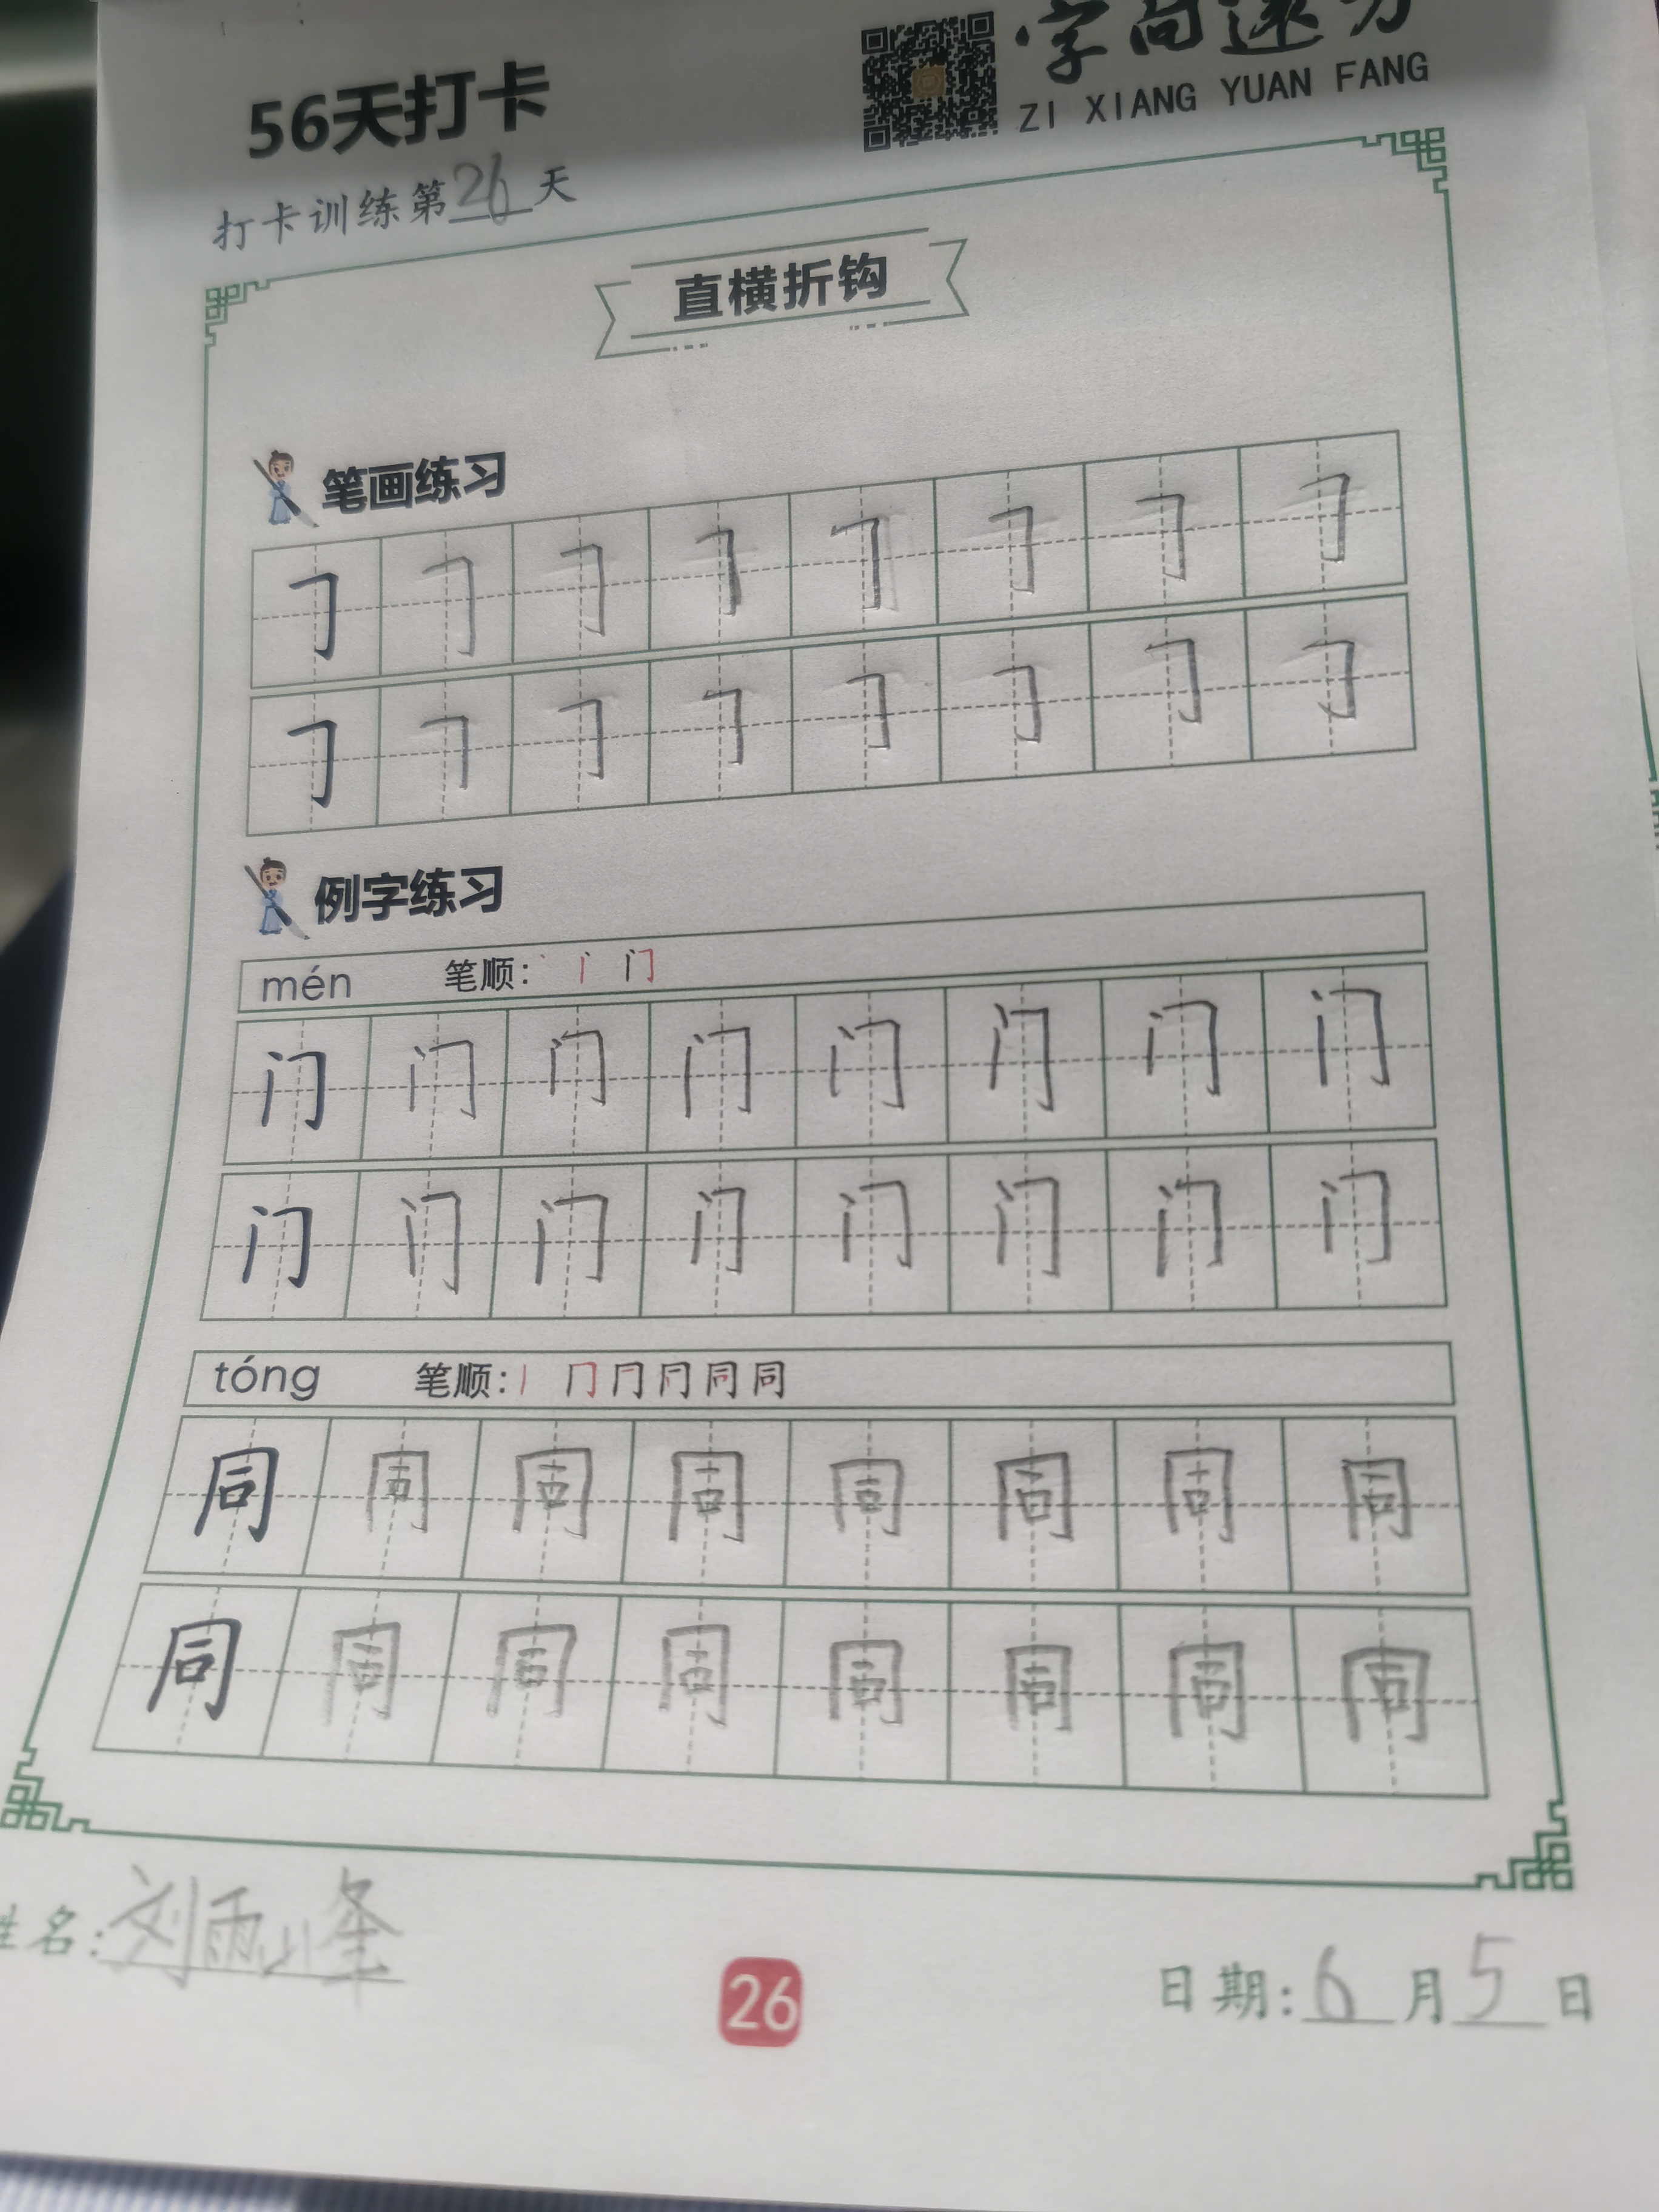 字向遠方
ZI XIANG YUAN FANG
56天打卡
打卡训练第26天
直横折钩
笔画练习
㇆ ㇆ ㇆ ㇆ ㇆ ㇆ ㇆ ㇆
㇆ ㇆ ㇆ ㇆ ㇆ ㇆ ㇆ ㇆
例字练习
mén 笔顺: 丶 门
门 门 门 门 门 门 门 门
门 门 门 门 门 门 门 门
tóng 笔顺: 丨 冂 冂 同 同
同 同 同 同 同 同 同 同
同 同 同 同 同 同 同 同
姓名:刘雨峰
26
日期:6月5日